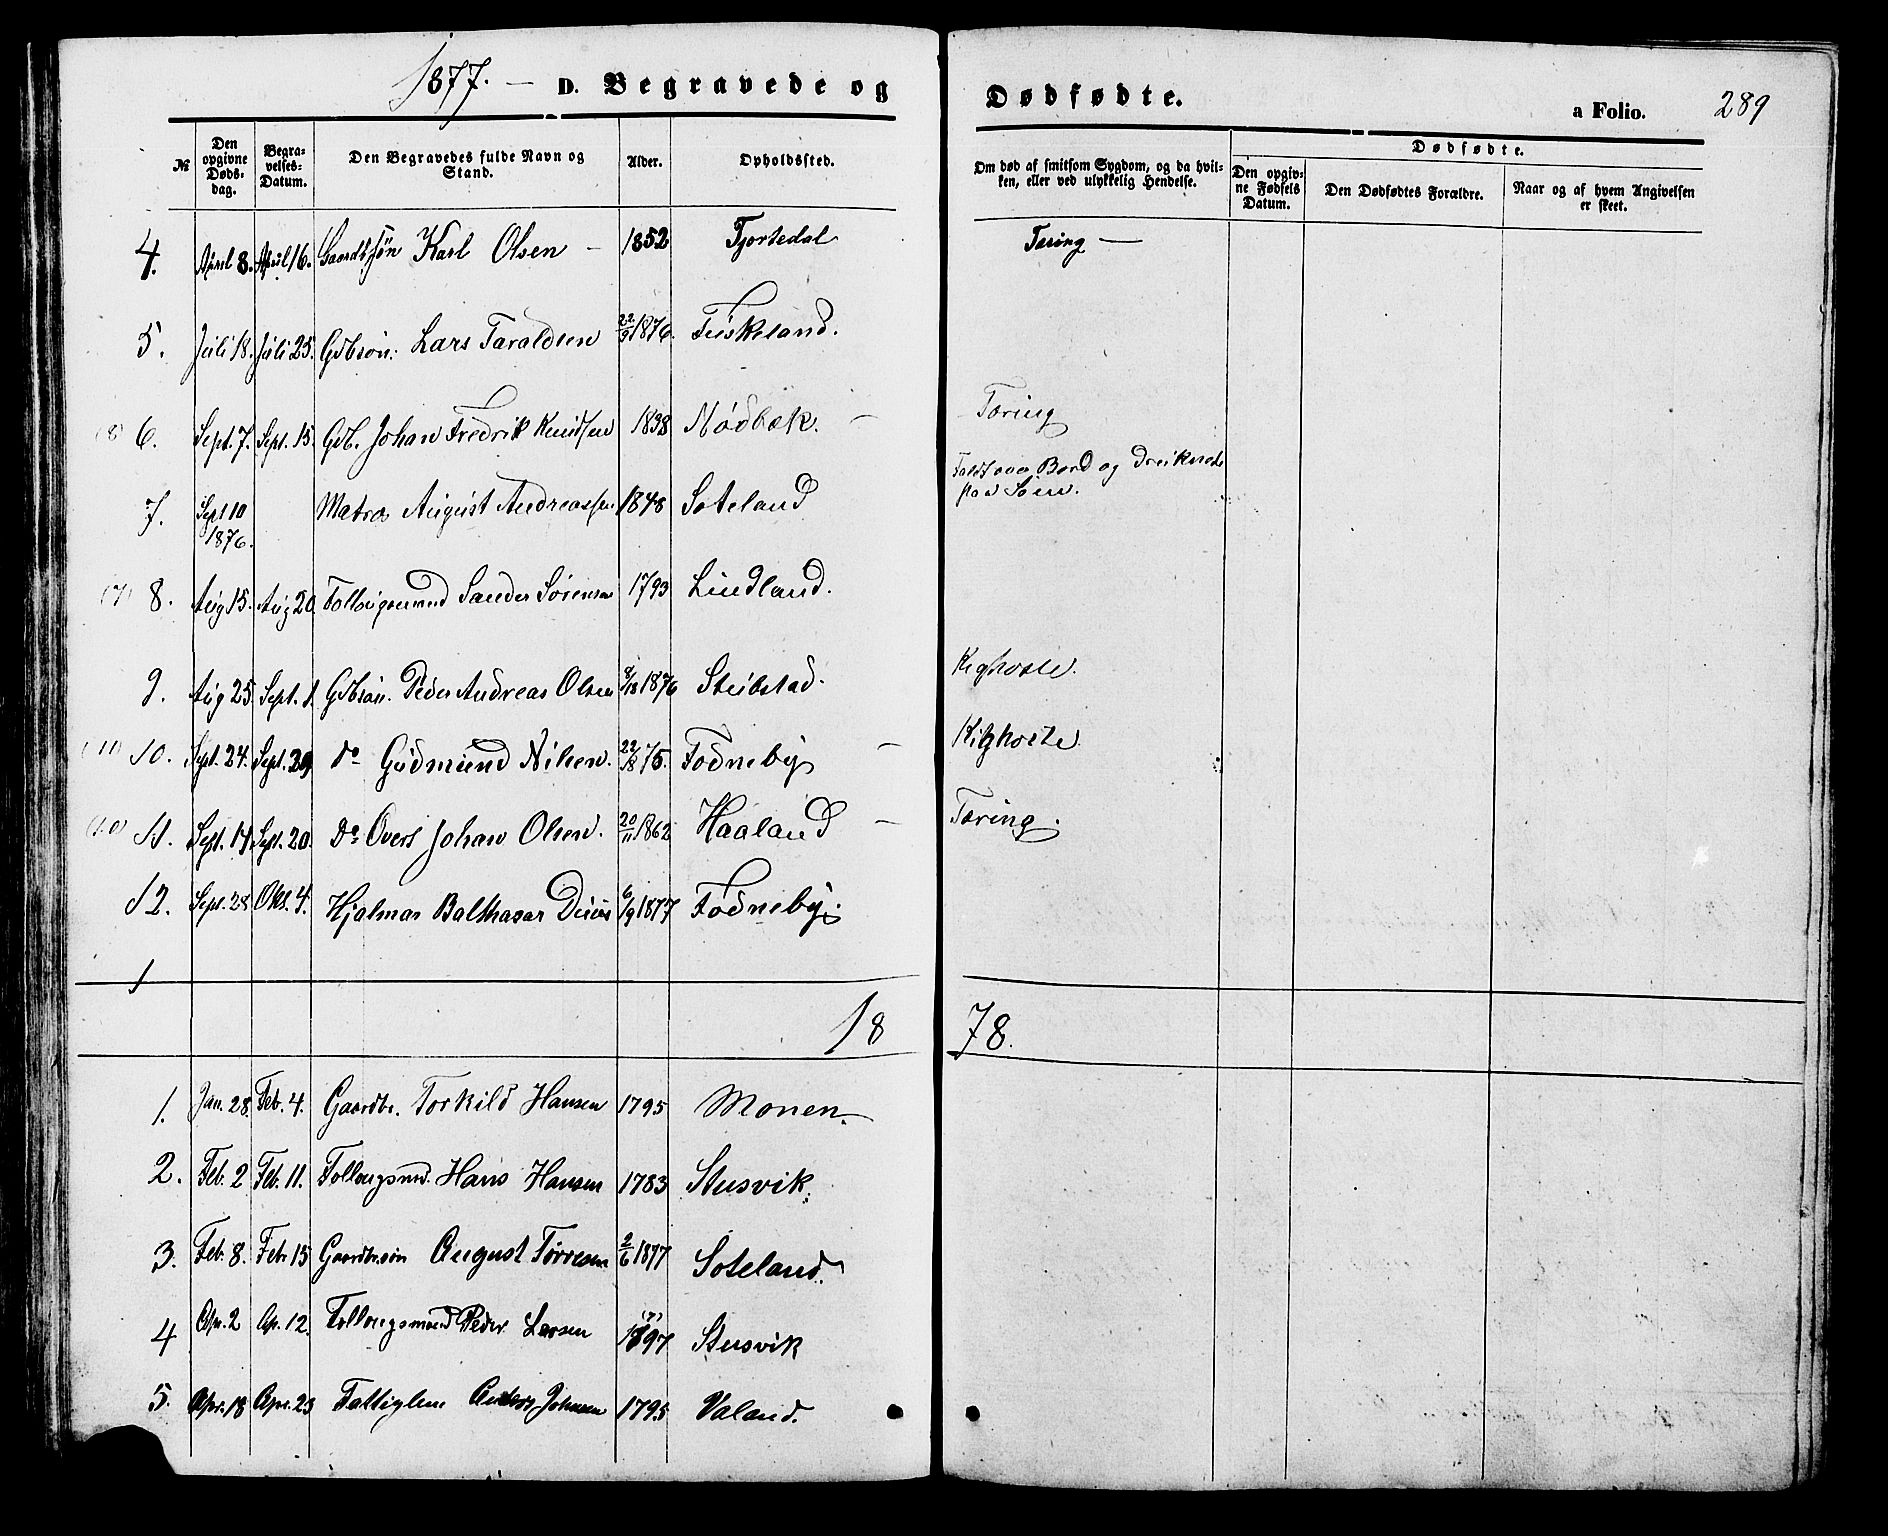 1877. — D. Begravede og Dødfødte. a Folio. 289
№ Den opgivne Dødsdag. Begravelses-Datum. Den Begravedes fulde Navn og Stand. Alder. Opholdssted. Om død af smitsom Sygdom, og da hvilken, eller ved ulykkelig Hendelse. Dødfødte. Den opgivne Fødsels Datum. Den Dødfødtes Forældre. Naar og af hvem Angivelsen er skeet.
4. April 8. April 16. Gaardbsøn Karl Olsen — 1852 Fjortedal Tæring —
5. Juli 18. Juli 25. Gdbsøn. Lars Taraldsen 22/9 1876. Fuskeland.
(8) 6. Sept. 7. Sept. 15. Gdb. Johan Fredrik Knudsen 1838 Nødbæk. — Tæring
7. Sept 10 1876. Matro August Andreassen 1848 Soteland Faldt over Bord og druknede paa Søen.
(7) 8. Aug 15. Aug 20 Follougsmand Sander Sørensen 1793 Lindland.
9. Aug 25 Sept. 1. Gdbsøn. Peder Andreas Olsen 9/18 1876 Stubstad. Kighoste.
(11) 10. Sept. 24. Sept. 29 do Gudmund Nilsen. 22/8 75. Fodneby — Kighoste
(10) 11. Sept. 14. Sept. 20. Do Overt Johan Olsen. 20/11 1862 Haaland — Tæring.
12. Sept. 28 Okt. 4. Hjalmar Balthasar 6/9 1877 Fodneby.
1
1878.
1. Jan. 28. Feb. 4. Gaardbr. Torkild Hansen 1795 Monen.
2. Feb. 2 Feb. 11. Follougsmd. Hans Hansen 1783 Stusvik.
3. Feb. 8. Feb 15 Gaardbrsøn August Tørresen 2/6 1877 Soteland.
4 Apr. 2 Ap. 12. Follougsmand Peder Larsen 1797 Stusvik
5. Apr. 18 Apr. 23 Fattiglem Anders Johnsen 1795 Valand.